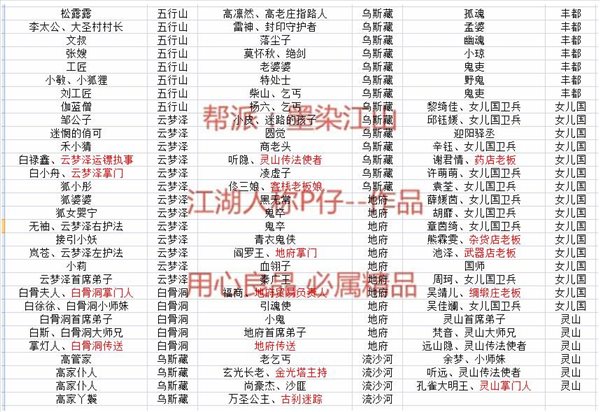 松露露 五行山 高凛然、高老庄指路人 乌斯藏 孤魂 丰都
李太公、大圣村村长 五行山 雷神、封印守护者 乌斯藏 孟婆 丰都
文叔 五行山 落尘子 乌斯藏 幽魂 丰都
张嫂 五行山 莫怀秋、绝剑 乌斯藏 小琼 丰都
工匠 五行山 老婆婆 乌斯藏 鬼吏 丰都
小敏、小狐狸 五行山 特处士 乌斯藏 野鬼 丰都
刘工匠 五行山 柴山、乞丐 乌斯藏 鬼吏 丰都
伽蓝僧 五行山 杨六、乞丐 乌斯藏 黎绮佳、女儿国卫兵 女儿国
邹公子 云梦泽 小皮、迷路的孩子 乌斯藏 邱钰媛、女儿国卫兵 女儿国
迷惘的俏可 云梦泽 圆觉 乌斯藏 迎阳驿丞 女儿国
禾小猜 云梦泽 商老头 乌斯藏 辛钰、女儿国卫兵 女儿国
白禄鑫、云梦泽运镖执事 云梦泽 听隐、灵山传法使者 乌斯藏 谢君情、药店老板 女儿国
白小舟、云梦泽掌门 云梦泽 凌虚子 乌斯藏 许萌萌、女儿国卫兵 女儿国
狐小彤 云梦泽 佟三娘、客栈老板娘 乌斯藏 袁荃、女儿国卫兵 女儿国
狐婆婆 云梦泽 黑无常 地府 薛媛茵、女儿国卫兵 女儿国
狐女婴宁 云梦泽 鬼卒 地府 胡靡、女儿国卫兵 女儿国
无袖、云梦泽右护法 云梦泽 鬼卒 地府 章茵绮、女儿国卫兵 女儿国
接引小妖 云梦泽 青衣鬼侠 地府 熊霖雯、杂货店老板 女儿国
岚苍、云梦泽左护法 云梦泽 阎罗王、地府掌门 地府 池泽、武器店老板 女儿国
小莉 云梦泽 血翎子 地府 国师 女儿国
云梦泽首席弟子 云梦泽 秦广王 地府 周珂、女儿国卫兵 女儿国
白骨夫人、白骨洞掌门人 白骨洞 福商、地府运镖负责人 地府 吴靖儿、绸缎庄老板 女儿国
白徐徐、白骨洞小师妹 白骨洞 引魂使 地府 吴佳斓、女儿国卫兵 女儿国
白骨洞首席弟子 白骨洞 小鬼 地府 灵山首席弟子 灵山
白斯、白骨洞大师兄 白骨洞 地府首席弟子 地府 梵音、灵山大师兄 灵山
掌灯人、白骨洞传送 白骨洞 地府传送 地府 远山隐、灵山传法使者 灵山
高管家 乌斯藏 老乞丐 流沙河 余梦、小师妹 灵山
高家仆人 乌斯藏 玄光长老、金光塔主持 流沙河 听远、灵山传法使者 灵山
高家仆人 乌斯藏 尚豪杰、沙匪 流沙河 孔雀大明王、灵山掌门人 灵山
高家丫鬟 乌斯藏 万圣公主、古刹迷踪 流沙河
帮派 墨染江山
江湖人称P仔--作品
用心良品 必属精品